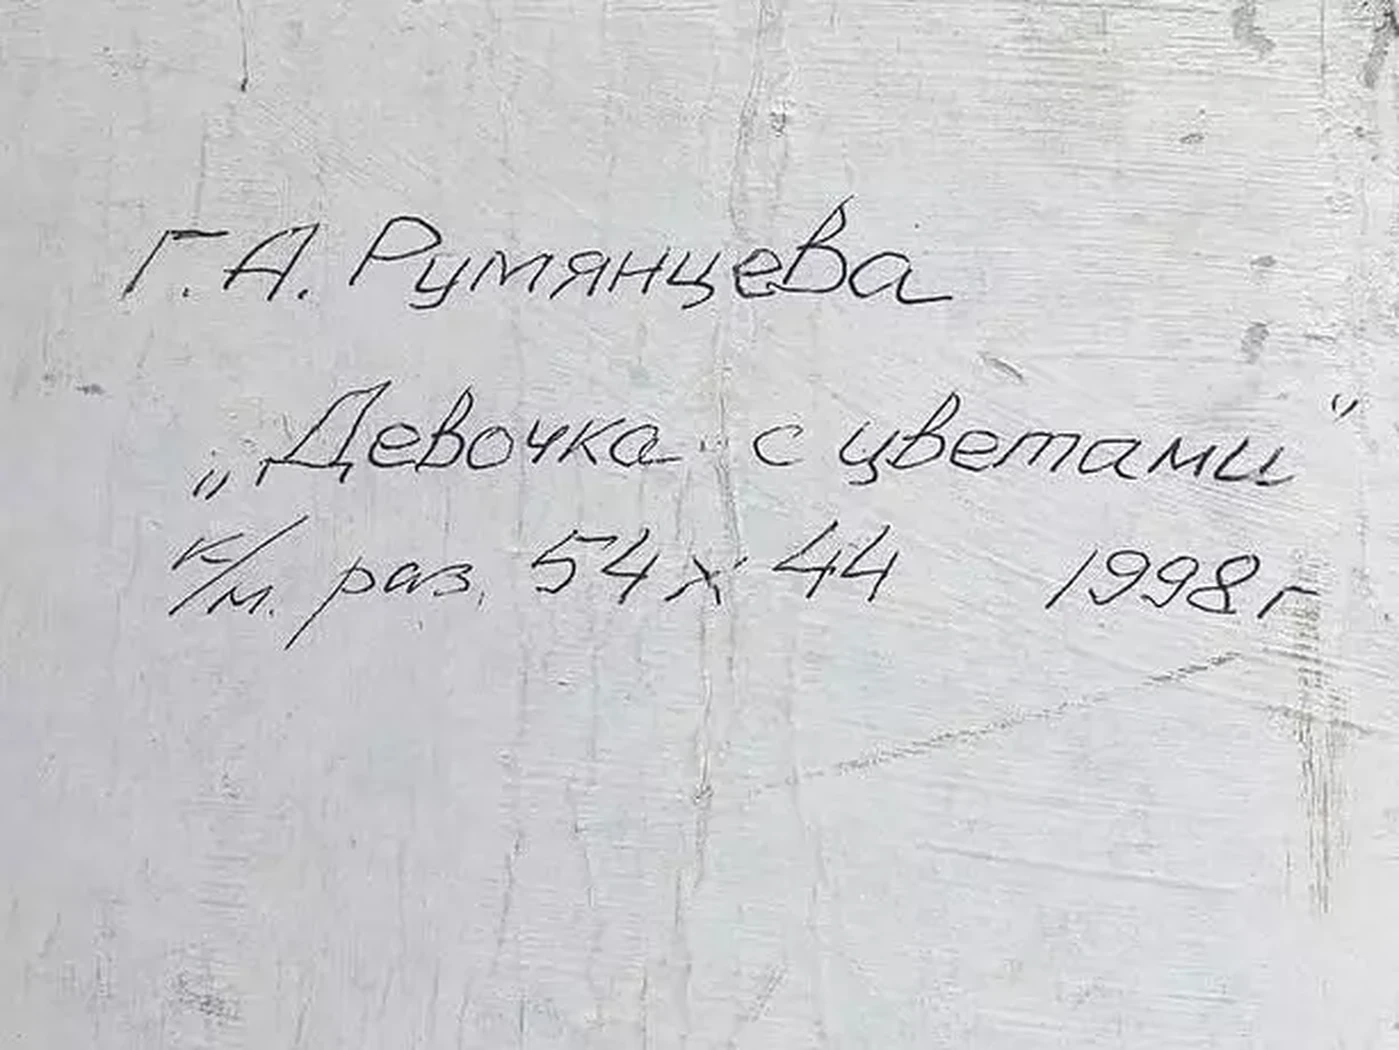 Г.А. Румянцева
„Девочка с цветами"
к/м. раз. 54 х 44 1998г